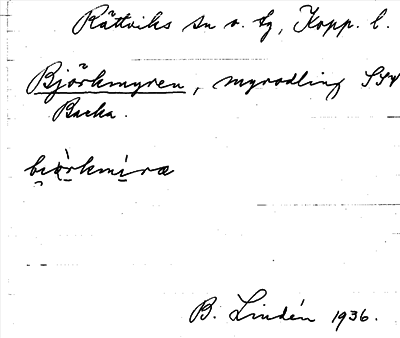 Rättviks sn o. tg, Kopp. l.
Björkmyren, myrodling SSV
Backa.
B. Lindén 1936.